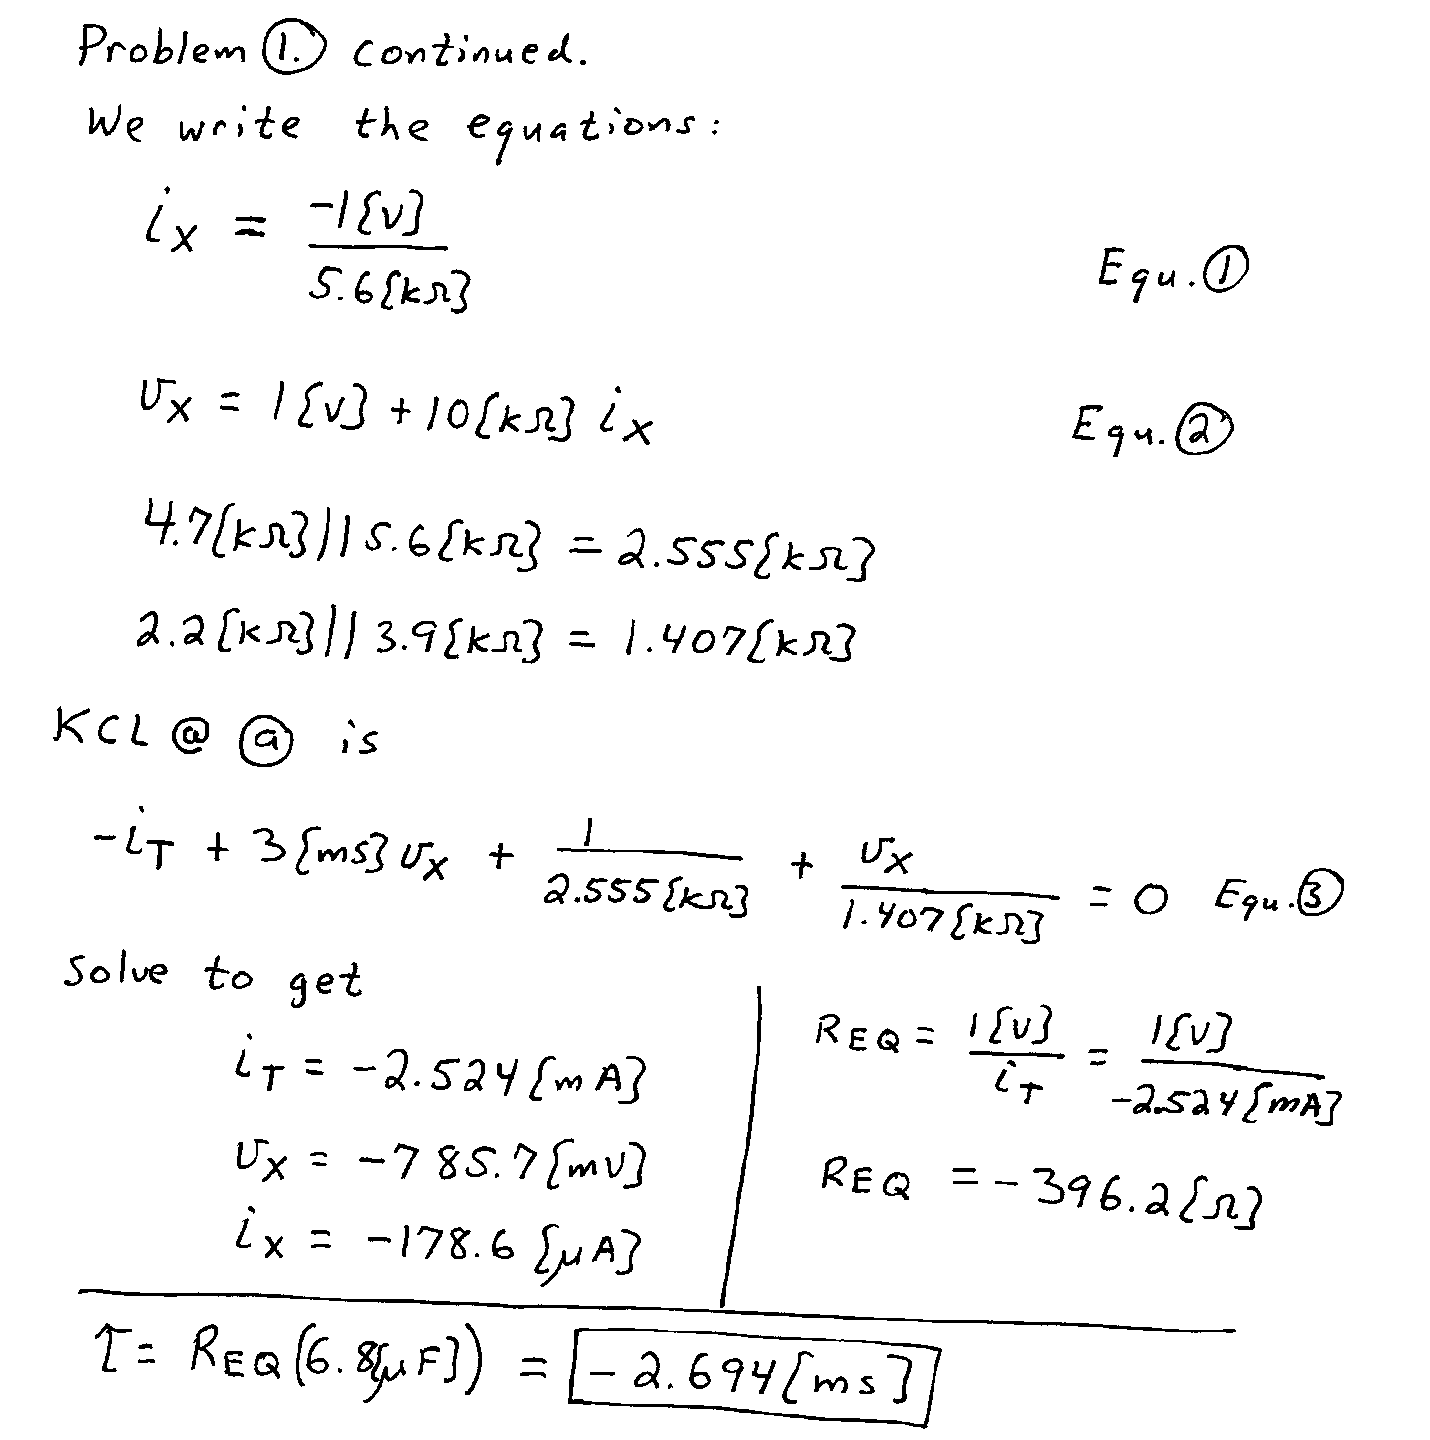 Problem ①. continued.
We write the equations:
i_X = -1{V} / 5.6{kΩ}    Equ.①
v_X = 1{V} + 10{kΩ} i_X    Equ.②
4.7{kΩ}||5.6{kΩ} = 2.555{kΩ}
2.2{kΩ}||3.9{kΩ} = 1.407{kΩ}
KCL @ ⓐ is
-i_T + 3{mS} v_X + 1 / 2.555{kΩ} + v_X / 1.407{kΩ} = 0    Equ.③
Solve to get
i_T = -2.524{mA}
v_X = -785.7{mV}
i_X = -178.6{μA}
R_EQ = 1{V} / i_T = 1{V} / -2.524{mA}
R_EQ = -396.2{Ω}
τ = R_EQ(6.8{μF}) = -2.694{ms}